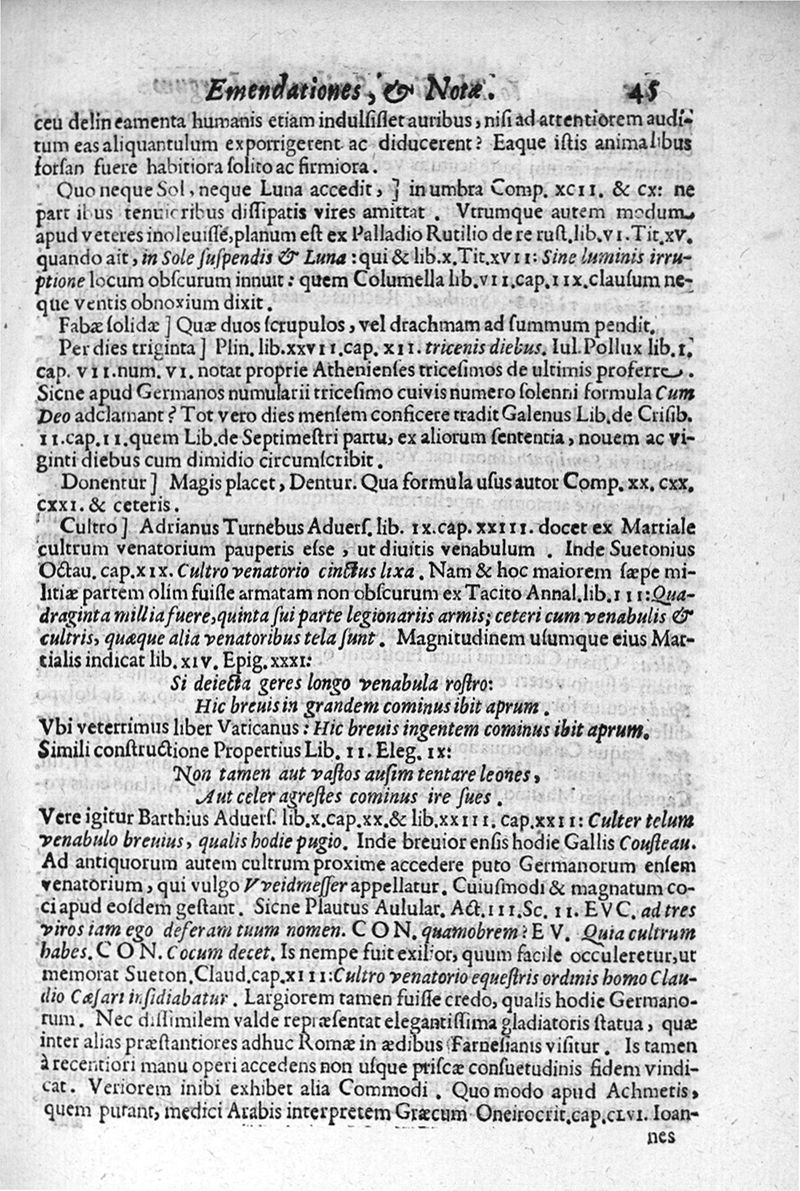 Emendationes, & Notæ. 45
ceu delineamenta humanis etiam indulsisset auribus, nisi ad attentiorem audi-
tum eas aliquantulum exporrigerent ac diducerent? Eaque istis animalibus
forsan fuere habitiora solito ac firmiora.
Quo neque Sol, neque Luna accedit, ] in umbra Comp. XCII. & CX: ne
partibus tenuioribus dissipatis vires amittat. Vtrumque autem modum
apud veteres inoleuisse, planum est ex Palladio Rutilio de re rust. lib. VI. Tit. XV.
quando ait, in Sole suspendis & Luna: qui & lib. X. Tit. XVII: Sine luminis irru-
ptione locum obscurum innuit: quem Columella lib. VII. cap. IIX. clausum ne-
que ventis obnoxium dixit.
Fabæ solidæ ] Quæ duos scrupulos, vel drachmam ad summum pendit.
Per dies triginta ] Plin. lib. XXVII. cap. XII. tricenis diebus. Iul. Pollux lib. I.
cap. VII. num. VI. notat proprie Athenienses tricesimos de ultimis proferre.
Sicne apud Germanos numularii tricesimo cuivis numero solenni formula Cum
Deo adclamant? Tot vero dies mensem conficere tradit Galenus Lib. de Crisib.
II. cap. II. quem Lib. de Septimestri partu, ex aliorum sententia, nouem ac vi-
ginti diebus cum dimidio circumscribit.
Donentur ] Magis placet, Dentur. Qua formula usus autor Comp. XX. CXX.
CXXI. & ceteris.
Cultro ] Adrianus Turnebus Aduers. lib. IX. cap. XXIII. docet ex Martiale
cultrum venatorium pauperis esse, ut diuitis venabulum. Inde Suetonius
Octau. cap. XIX. Cultro venatorio cinctus lixa. Nam & hoc maiorem sæpe mi-
litiæ partem olim fuisse armatam non obscurum ex Tacito Annal. lib. III: Qua-
draginta millia fuere, quinta sui parte legionariis armis; ceteri cum venabulis &
cultris, quæque alia venatoribus tela sunt. Magnitudinem usumque eius Mar-
tialis indicat lib. XIV. Epig. XXXI:
Si deiecta geres longo venabula rostro:
Hic breuis in grandem cominus ibit aprum.
Vbi veterrimus liber Vaticanus: Hic breuis ingentem cominus ibit aprum.
Simili constructione Propertius Lib. II. Eleg. IX:
Non tamen aut vastos ausim tentare leones,
Aut celer agrestes cominus ire sues.
Vere igitur Barthius Aduers. lib. X. cap. XX. & lib. XXIII. cap. XXII: Culter telum
venabulo breuius, qualis hodie pugio. Inde breuior ensis hodie Gallis Cousteau.
Ad antiquorum autem cultrum proxime accedere puto Germanorum ensem
venatorium, qui vulgo VVeidmesser appellatur. Cuiusmodi & magnatum co-
ci apud eosdem gestant. Sicne Plautus Aulular. Act. III. Sc. II. EVC. ad tres
viros iam ego deferam tuum nomen. CON. quamobrem? EV. Quia cultrum
habes. CON. Cocum decet. Is nempe fuit exilior, quum facile occuleretur, ut
memorat Sueton. Claud. cap. XIII: Cultro venatorio equestris ordinis homo Clau-
dio Cæsari insidiabatur. Largiorem tamen fuisse credo, qualis hodie Germano-
rum. Nec dissimilem valde repræsentat elegantissima gladiatoris statua, quæ
inter alias præstantiores adhuc Romæ in ædibus Farnesianis visitur. Is tamen
à recentiori manu operi accedens non usque priscæ consuetudinis fidem vindi-
cat. Veriorem inibi exhibet alia Commodi. Quo modo apud Achmetis,
quem putant, medici Arabis interpretem Græcum Oneirocrit. cap. CLVI. Ioan-
nes